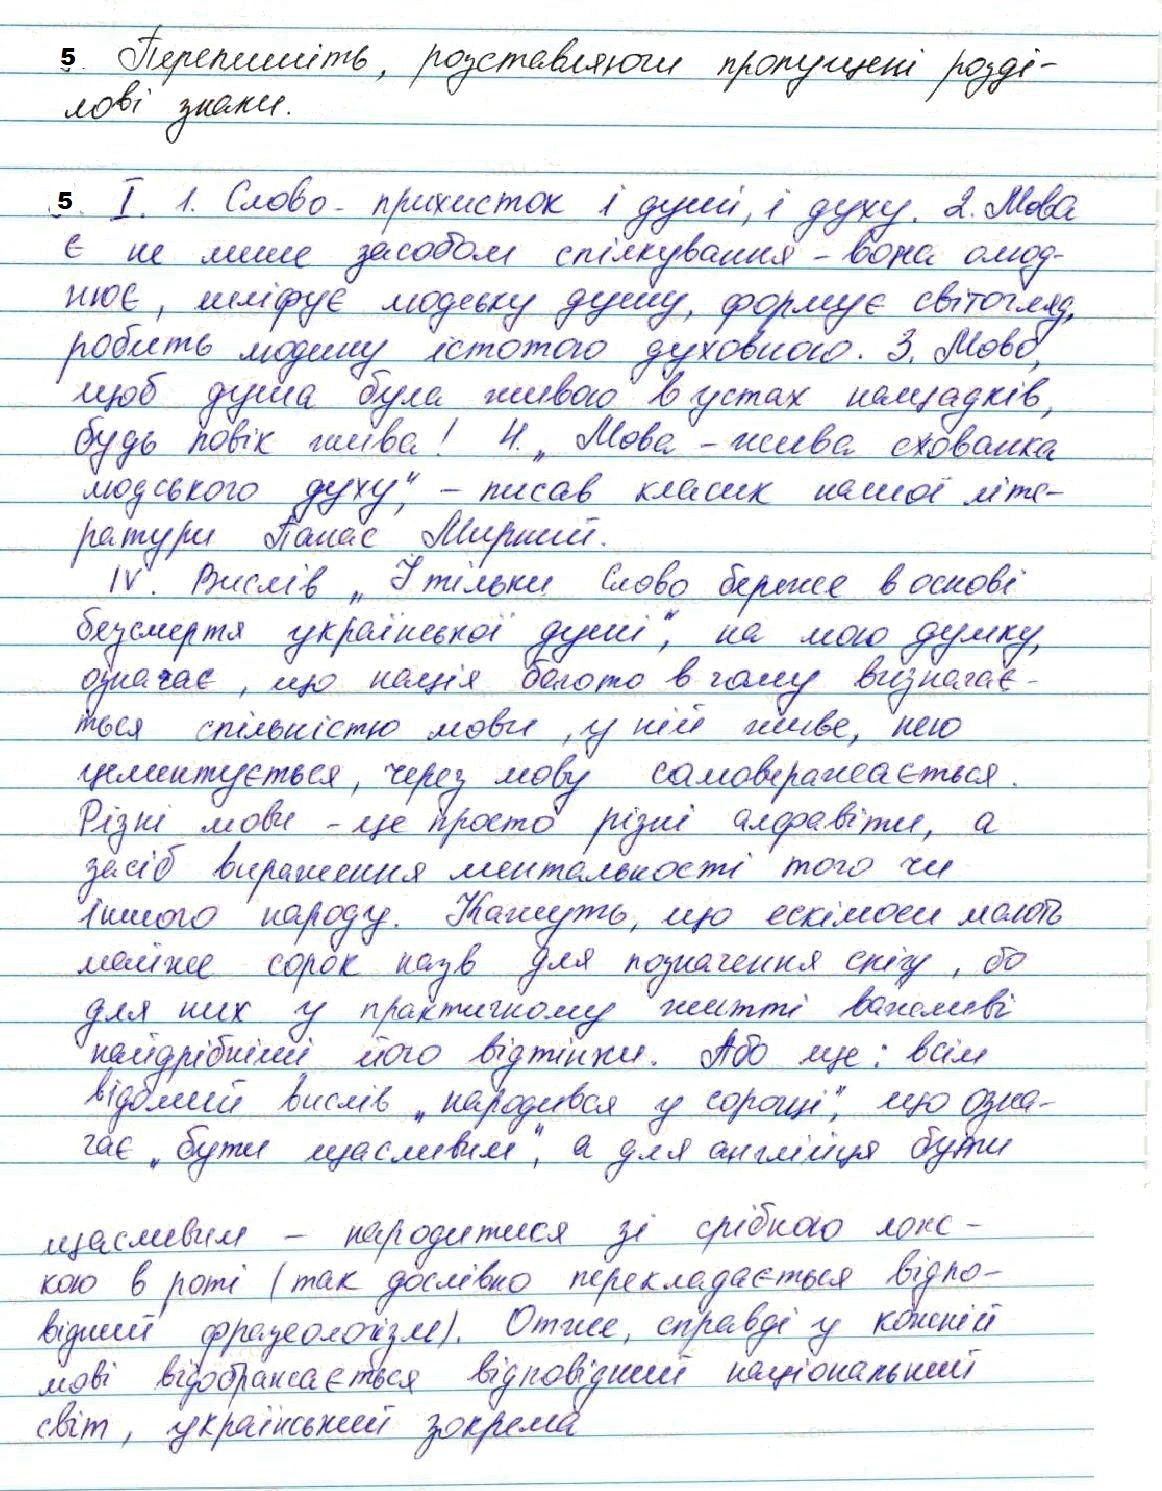 5. Перепишіть, розставляючи пропущені розді-
лові знаки.
5. I. 1. Слово - прихисток і душі, і духу. 2. Мова
є не лише засобом спілкування - вона олюд-
нює, шліфує людську душу, формує світогляд,
робить людину істотою духовною. 3. Мово,
щоб душа була живою в устах нащадків,
будь повік жива! 4. „Мова - жива схованка
людського духу", - писав класик нашої літе-
ратури Панас Мирний.
IV. Вислів „І тільки слово береже в основі
безсмертя української душі", на мою думку,
означає, що нація багато в чому визначає-
ться спільністю мови, у ній живе, нею
цементується, через мову самовиражається.
Різні мови - це просто різні алфавіти, а
засіб вираження ментальності того чи
іншого народу. Кажуть, що ескімоси мають
майже сорок назв для позначення снігу, бо
для них у практичному житті важливі
найдрібніші його відтінки. Або ще: всім
відомий вислів „народився у сорочці", що озна-
чає „бути щасливим", а для англійця бути
щасливим - народитися зі срібною лож-
кою в роті (так дослівно перекладається відпо-
відний фразеологізм). Отже, справді у кожній
мові відображається відповідний національний
світ, український зокрема